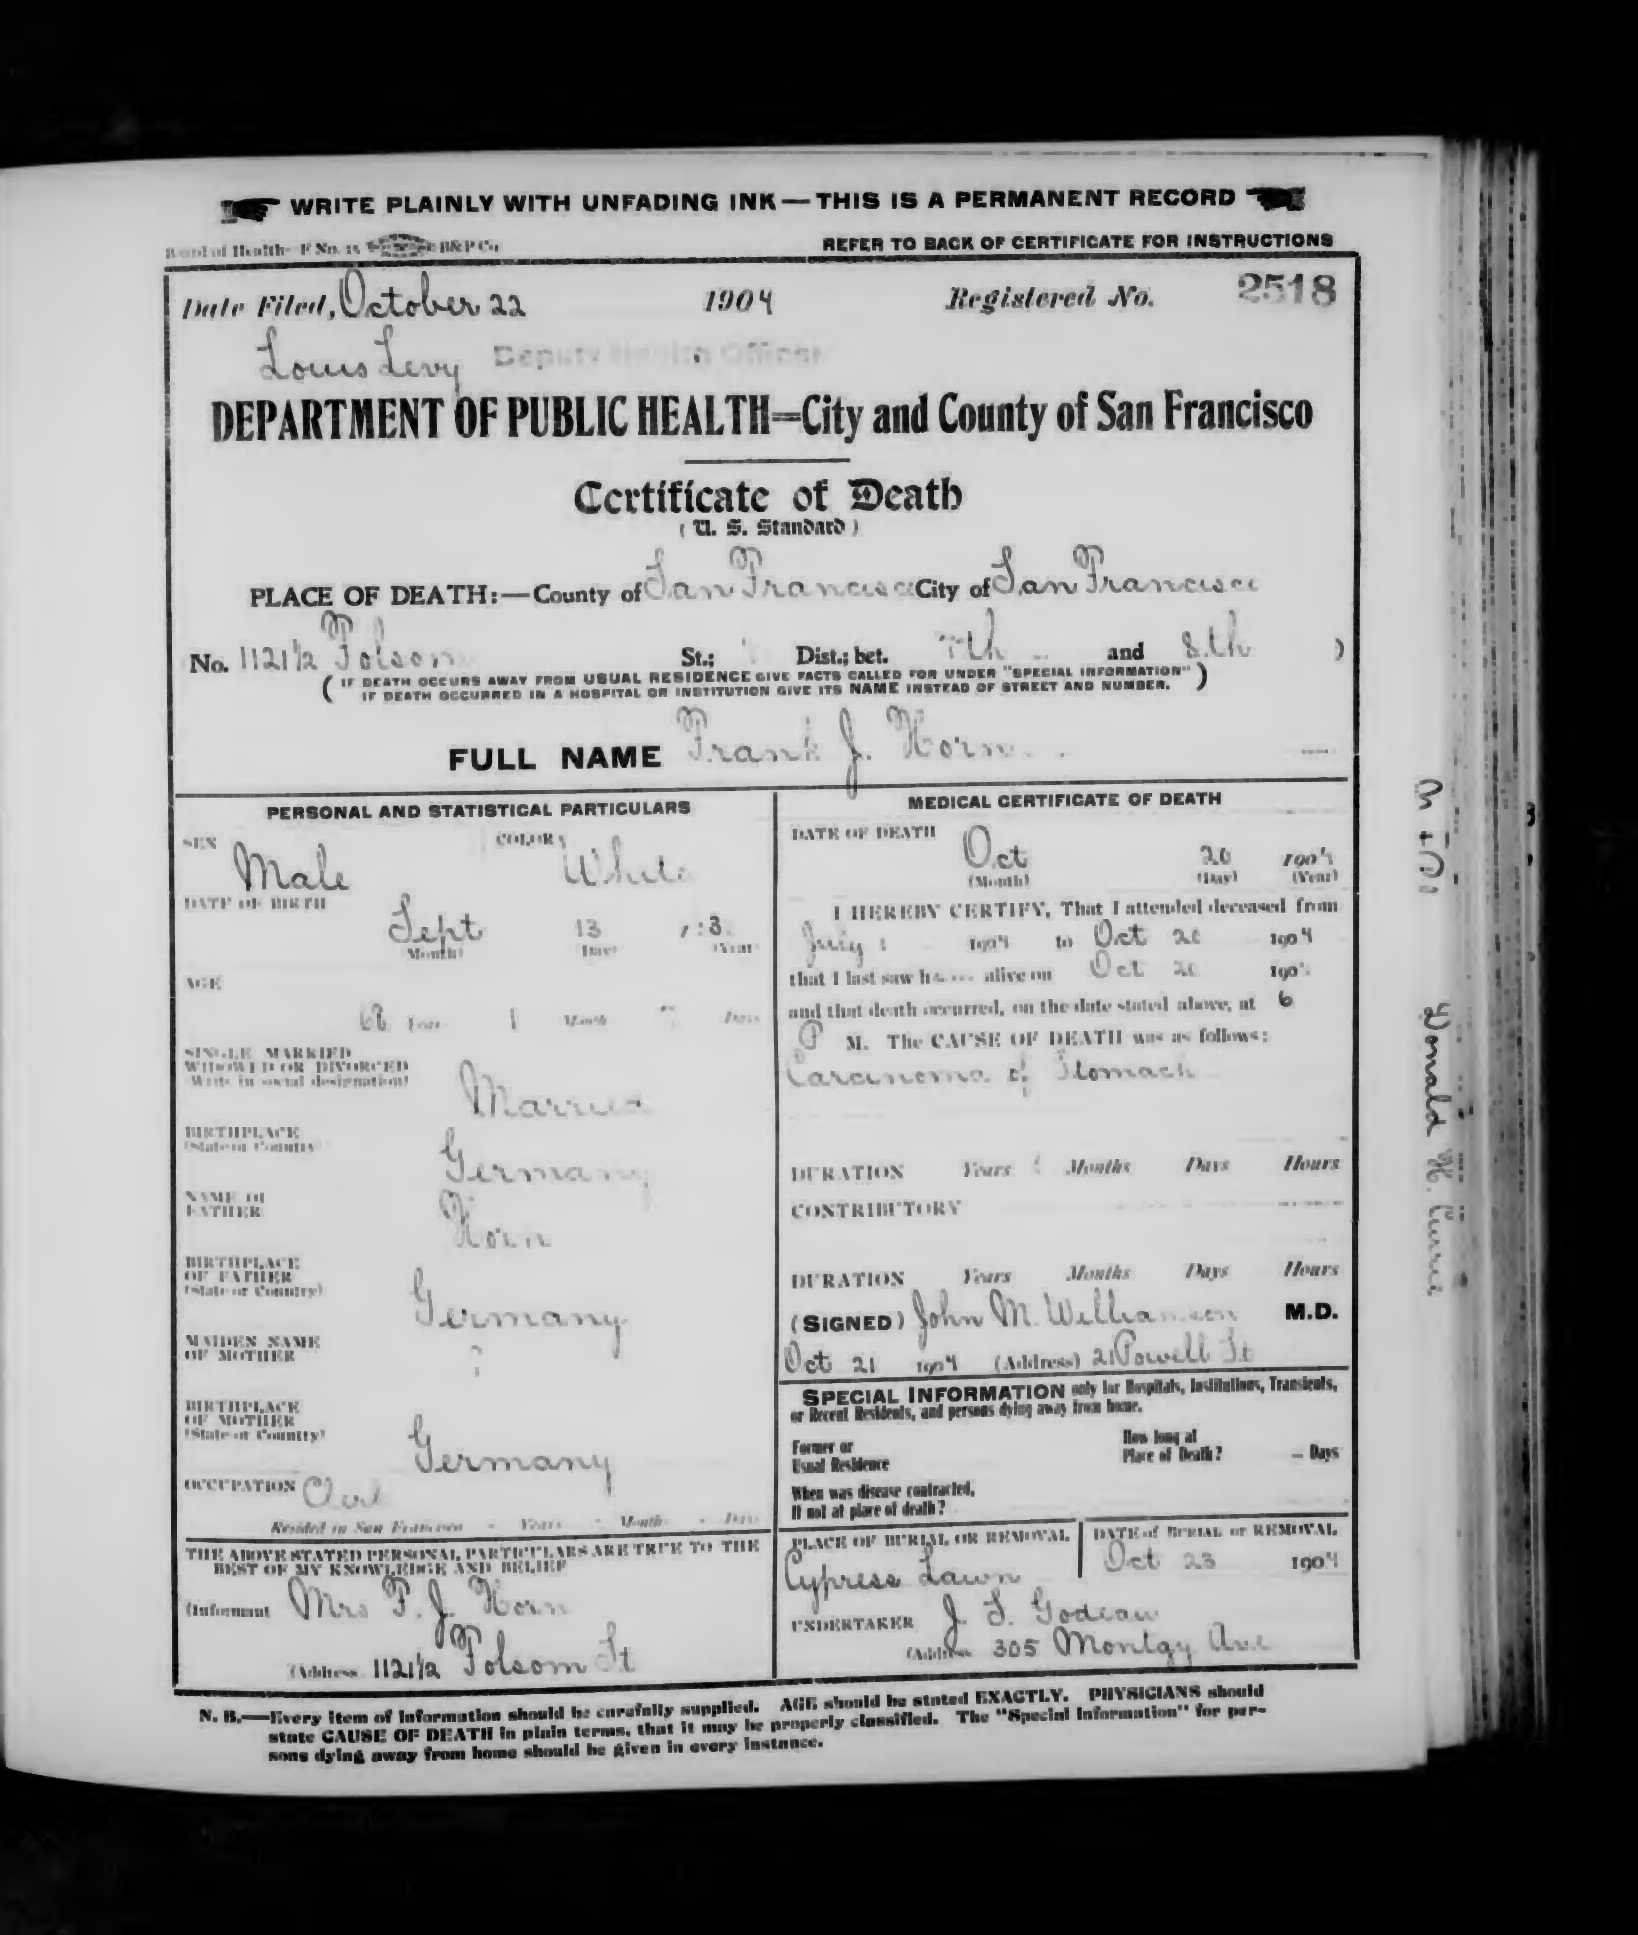 WRITE PLAINLY WITH UNFADING INK — THIS IS A PERMANENT RECORD
Board of Health F No. 15 B&P Co.
REFER TO BACK OF CERTIFICATE FOR INSTRUCTIONS
Date Filed, October 22 1904 Registered No. 2518
Louis Levy Deputy Health Officer
DEPARTMENT OF PUBLIC HEALTH=City and County of San Francisco
Certificate of Death
( U. S. Standard )
PLACE OF DEATH:—County of San Francisco City of San Francisco
No. 1121½ Folsom St.; Dist.; bet. 7th and 8th )
( IF DEATH OCCURS AWAY FROM USUAL RESIDENCE GIVE FACTS CALLED FOR UNDER "SPECIAL INFORMATION" )
IF DEATH OCCURRED IN A HOSPITAL OR INSTITUTION GIVE ITS NAME INSTEAD OF STREET AND NUMBER.
FULL NAME Frank J. Horn
PERSONAL AND STATISTICAL PARTICULARS
SEX COLOR
Male White
DATE OF BIRTH
Sept 13
(Month) (Day) (Year)
AGE
68 Years 1 Month Days
SINGLE MARRIED
WIDOWED OR DIVORCED
(Write in social designation)
Married
BIRTHPLACE
(State or Country)
Germany
NAME OF
FATHER
Horn
BIRTHPLACE
OF FATHER
(State or Country)
Germany
MAIDEN NAME
OF MOTHER
?
BIRTHPLACE
OF MOTHER
(State or Country)
Germany
OCCUPATION
Resided in San Francisco - Years - Months - Days
THE ABOVE STATED PERSONAL PARTICULARS ARE TRUE TO THE
BEST OF MY KNOWLEDGE AND BELIEF
(Informant Mrs F. J. Horn
(Address 1121½ Folsom St
MEDICAL CERTIFICATE OF DEATH
DATE OF DEATH
Oct 20 1904
(Month) (Day) (Year)
I HEREBY CERTIFY, That I attended deceased from
July 1 1904 to Oct 20 1904
that I last saw h alive on Oct 20 190
and that death occurred, on the date stated above, at 6
P M. The CAUSE OF DEATH was as follows:
Carcinoma of Stomach
DURATION Years Months Days Hours
CONTRIBUTORY
DURATION Years Months Days Hours
(SIGNED) John M. Williamson M.D.
Oct 21 1904 (Address) 21 Powell St
SPECIAL INFORMATION only for Hospitals, Institutions, Transients,
or Recent Residents, and persons dying away from home.
Former or
Usual Residence
How long at
Place of Death? – Days
When was disease contracted,
If not at place of death?
PLACE OF BURIAL OR REMOVAL
Cypress Lawn
DATE of BURIAL or REMOVAL
Oct 23 1904
UNDERTAKER J. S. Godeau
(Address 305 Montgy Ave
N. B.—Every item of information should be carefully supplied. AGE should be stated EXACTLY. PHYSICIANS should
state CAUSE OF DEATH in plain terms, that it may be properly classified. The "Special Information" for per-
sons dying away from home should be given in every instance.
Donald H. Currie